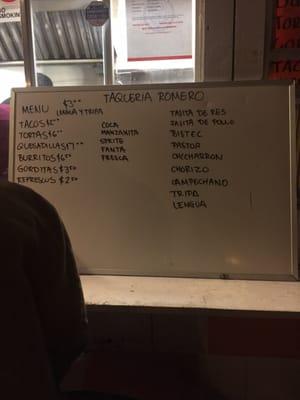 NO
SMOKING
TAQUERIA ROMERO
MENU $3⁰⁰
LENGUA Y TRIPA
TACOS $2⁵⁰
TORTAS $6⁰⁰
QUESADILLAS $7⁰⁰
BURRITOS $6⁵⁰
GORDITAS $3⁵⁰
REFRESCOS $2⁰⁰
COCA
MANZANITA
SPRITE
FANTA
FRESCA
FAJITA DE RES
FAJITA DE POLLO
BISTEC
PASTOR
CHICHARRON
CHORIZO
CAMPECHANO
TRIPA
LENGUA